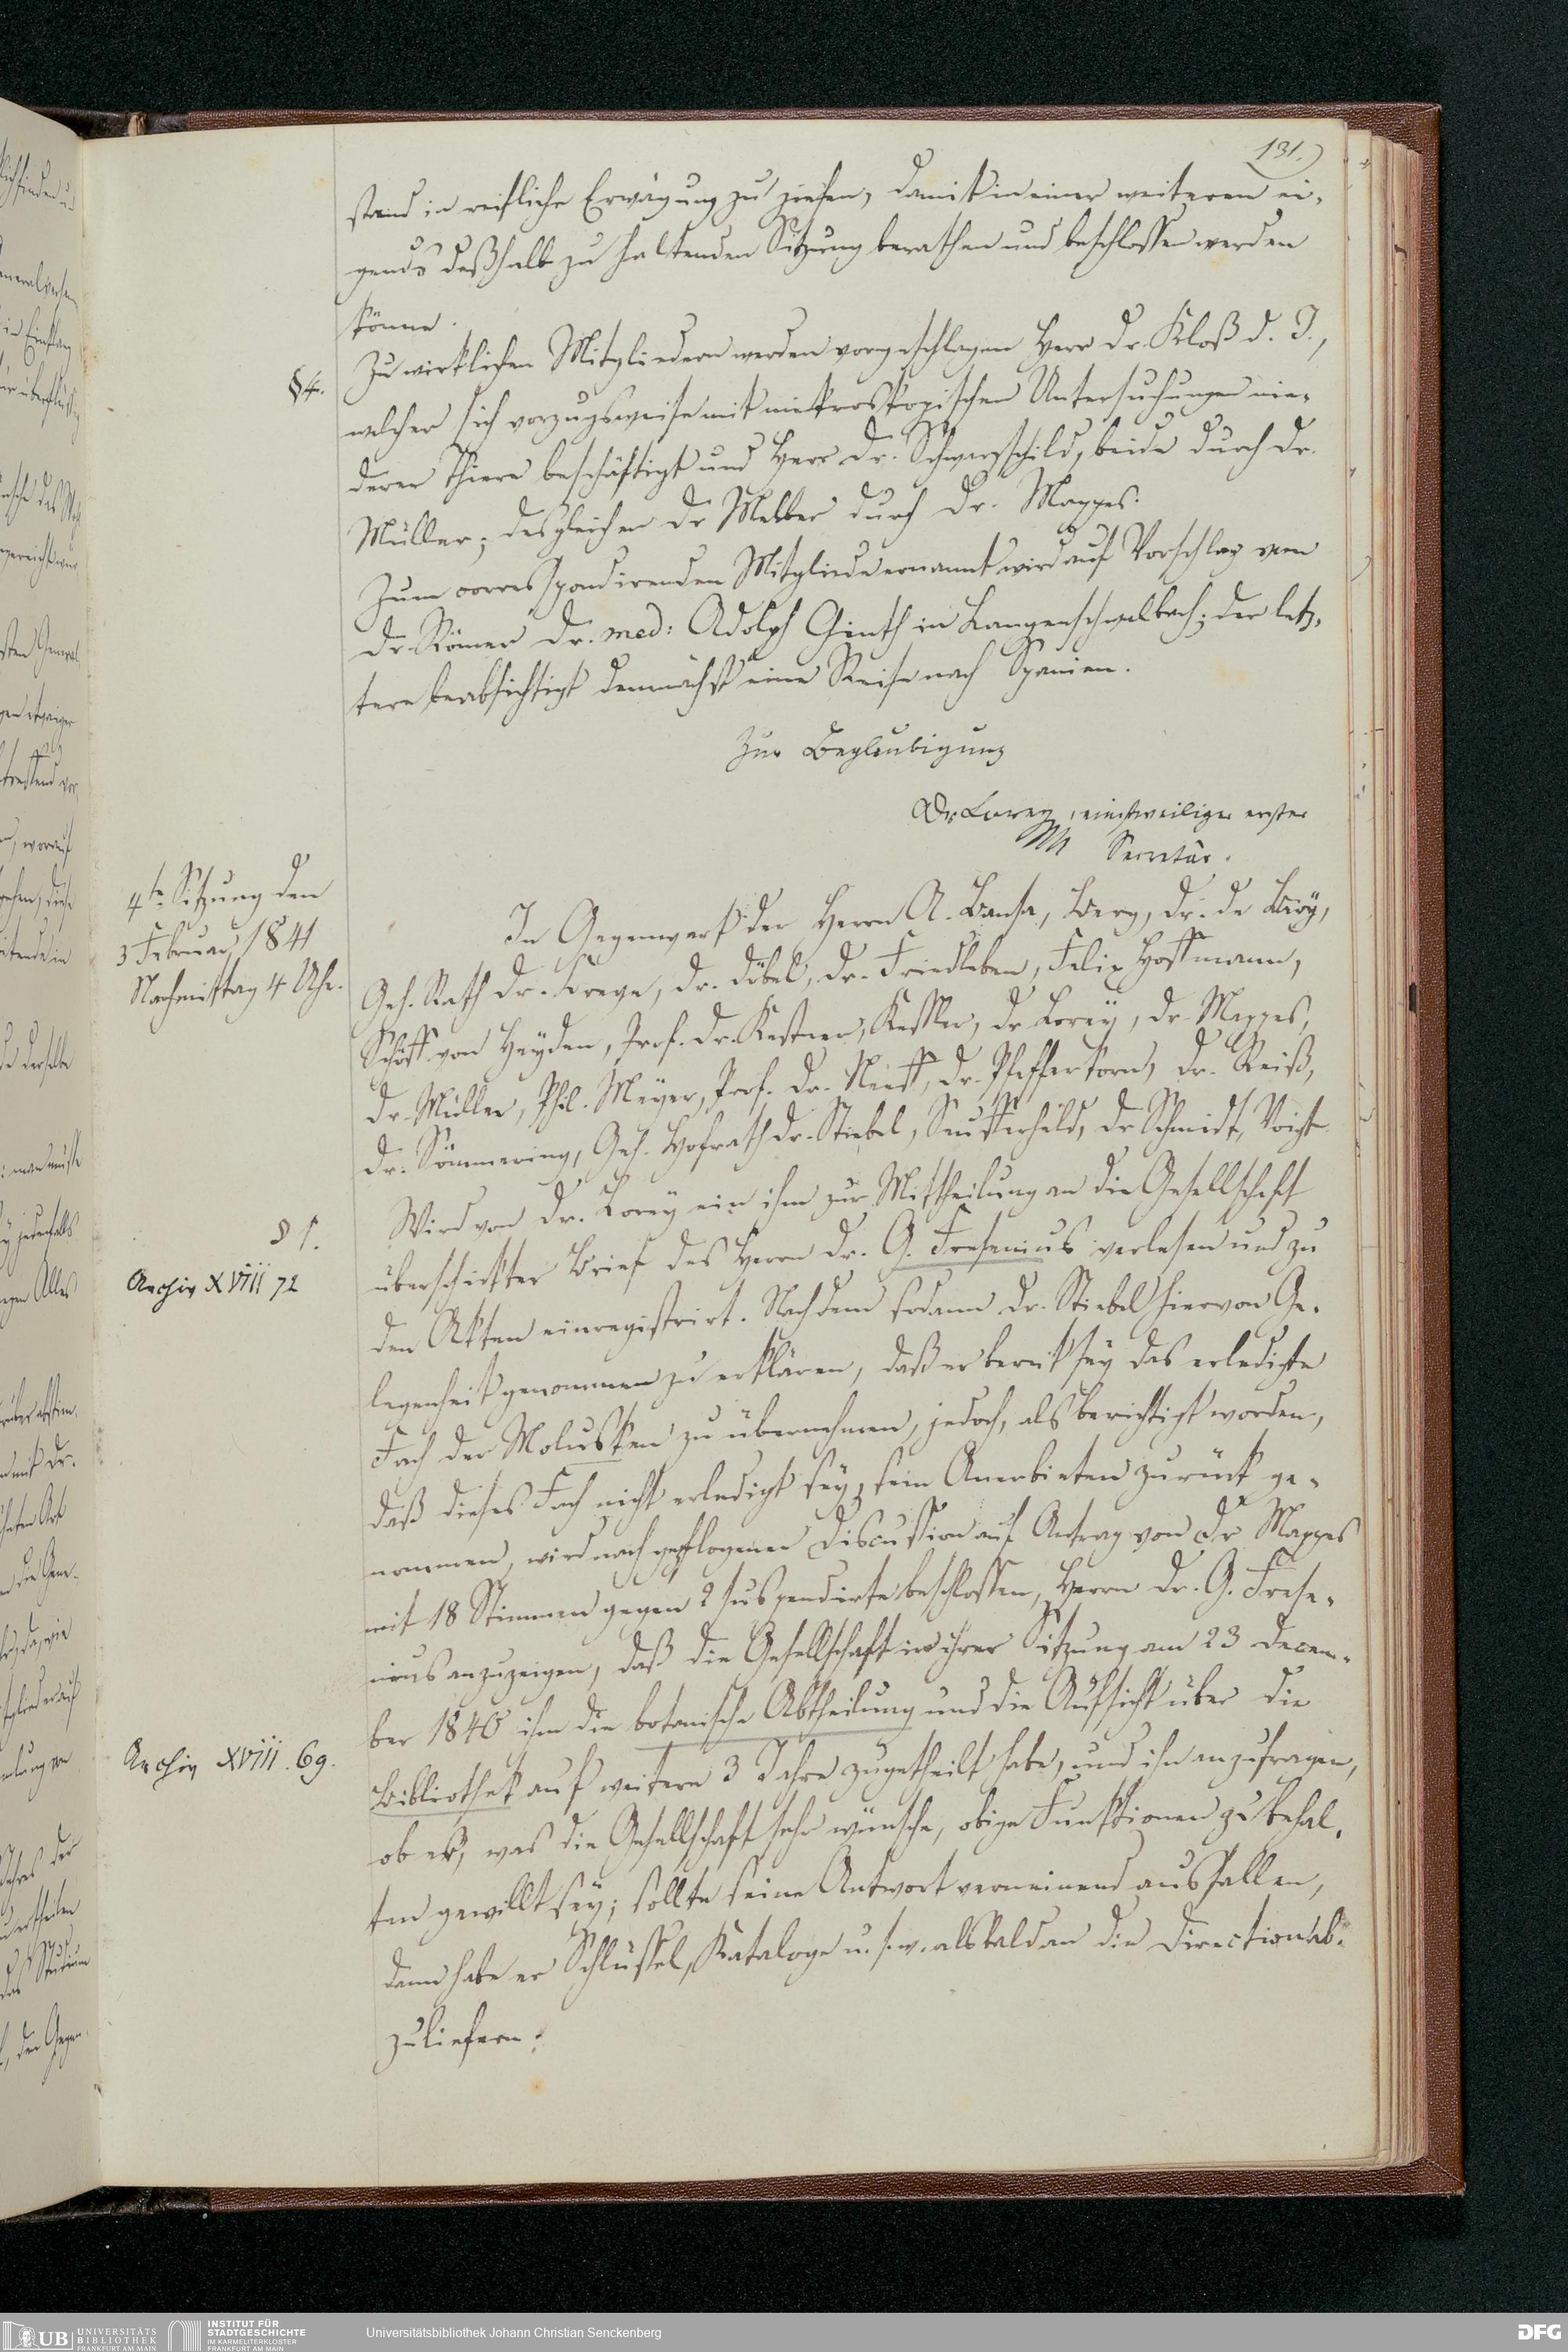 131.)
stand in reifliche Erwägung zu ziehen, damit in einer weiteren ei-
gends deßhalb zu haltenden Sitzung berathen und beschlossen werden
könne.
§ 4.
Zu wirklichen Mitgliedern werden vorgeschlagen Herr Dr. Kloß d. J.,
welcher sich vorzugsweise mit mikroskopischen Untersuchungen nie-
derer Thiere beschäftigt und Herr Dr. Schwarzschild, beide durch Dr.
Müller; desgleichen Dr Melber durch Dr. Mappes.
Zum correspondirenden Mitgliede ernannt wird auf Vorschlag von
Dr. Römer Dr. med: Adolph Genth in Langenschwalbach; der letz-
tere beabsichtigt demnächst eine Reise nach Spanien.
Zur Beglaubigung
Dr Lorey, einstweiliger erster
Secretär.
4te Sitzung den
3 Februar 1841
Nachmittag 4 Uhr.
In Gegenwart der Herrn A. Bansa, Berg, Dr. de Bary,
Geh. Rath Dr. Döbel, Dr. Friedleben, Felix Hoffmann,
Schöff von Heyden, Prof. Dr. Kestner, Kessler, Dr Lorey, Dr Mappes,
Dr. Müller, Phil. Meyer, Prof. Dr. Neeff, Dr. Pfefferkorn, Dr. Reiß,
Dr. Sömmering, Geh. Hofrath Dr. Stiebel, Seufferheld, Dr Schmidt, Voigt
§ 1.
Wird von Dr. Lorey ein ihm zur Mittheilung an die Gesellschaft
überschickter Brief des Herrn Dr. G. Fresenius verlesen und zu
Archiv XVIII 72
den Akten einregistrirt. Nachdem sodann Dr. Stiebel hiervon Ge-
legenheit genommen zu erklären, daß er bereit sey das erledigte
Fach der Molusken zu übernehmen, jedoch, als berichtigt worden,
daß dieses Fach nicht erledigt sey, sein Anerbieten zurück ge-
nommen, wird nach gepflogener Discussion auf Antrag von Dr Mappes
mit 18 Stimmen gegen 2 suspendirte beschlossen, Herrn Dr. G. Frese-
nius anzuzeigen, daß die Gesellschaft in ihrer Sitzung am 23 Decem-
ber 1840 ihm die botanische Abtheilung und die Aufsicht über die
Archiv XVIII. 69.
Bibliothek auf weitere 3 Jahre zugetheilt habe, und ihn anzufragen,
ob er, was die Gesellschaft sehr wünsche, obige Funktionen zu behal-
ten gewillt sey; sollte seine Antwort verneinend ausfallen,
dann habe er Schlüssel, Kataloge u. s. w. alsbald an die Direction ab-
zuliefern.
UB UNIVERSITÄTS
BIBLIOTHEK
FRANKFURT AM MAIN
INSTITUT FÜR
STADTGESCHICHTE
IM KARMELITERKLOSTER
FRANKFURT AM MAIN
Universitätsbibliothek Johann Christian Senckenberg
DFG